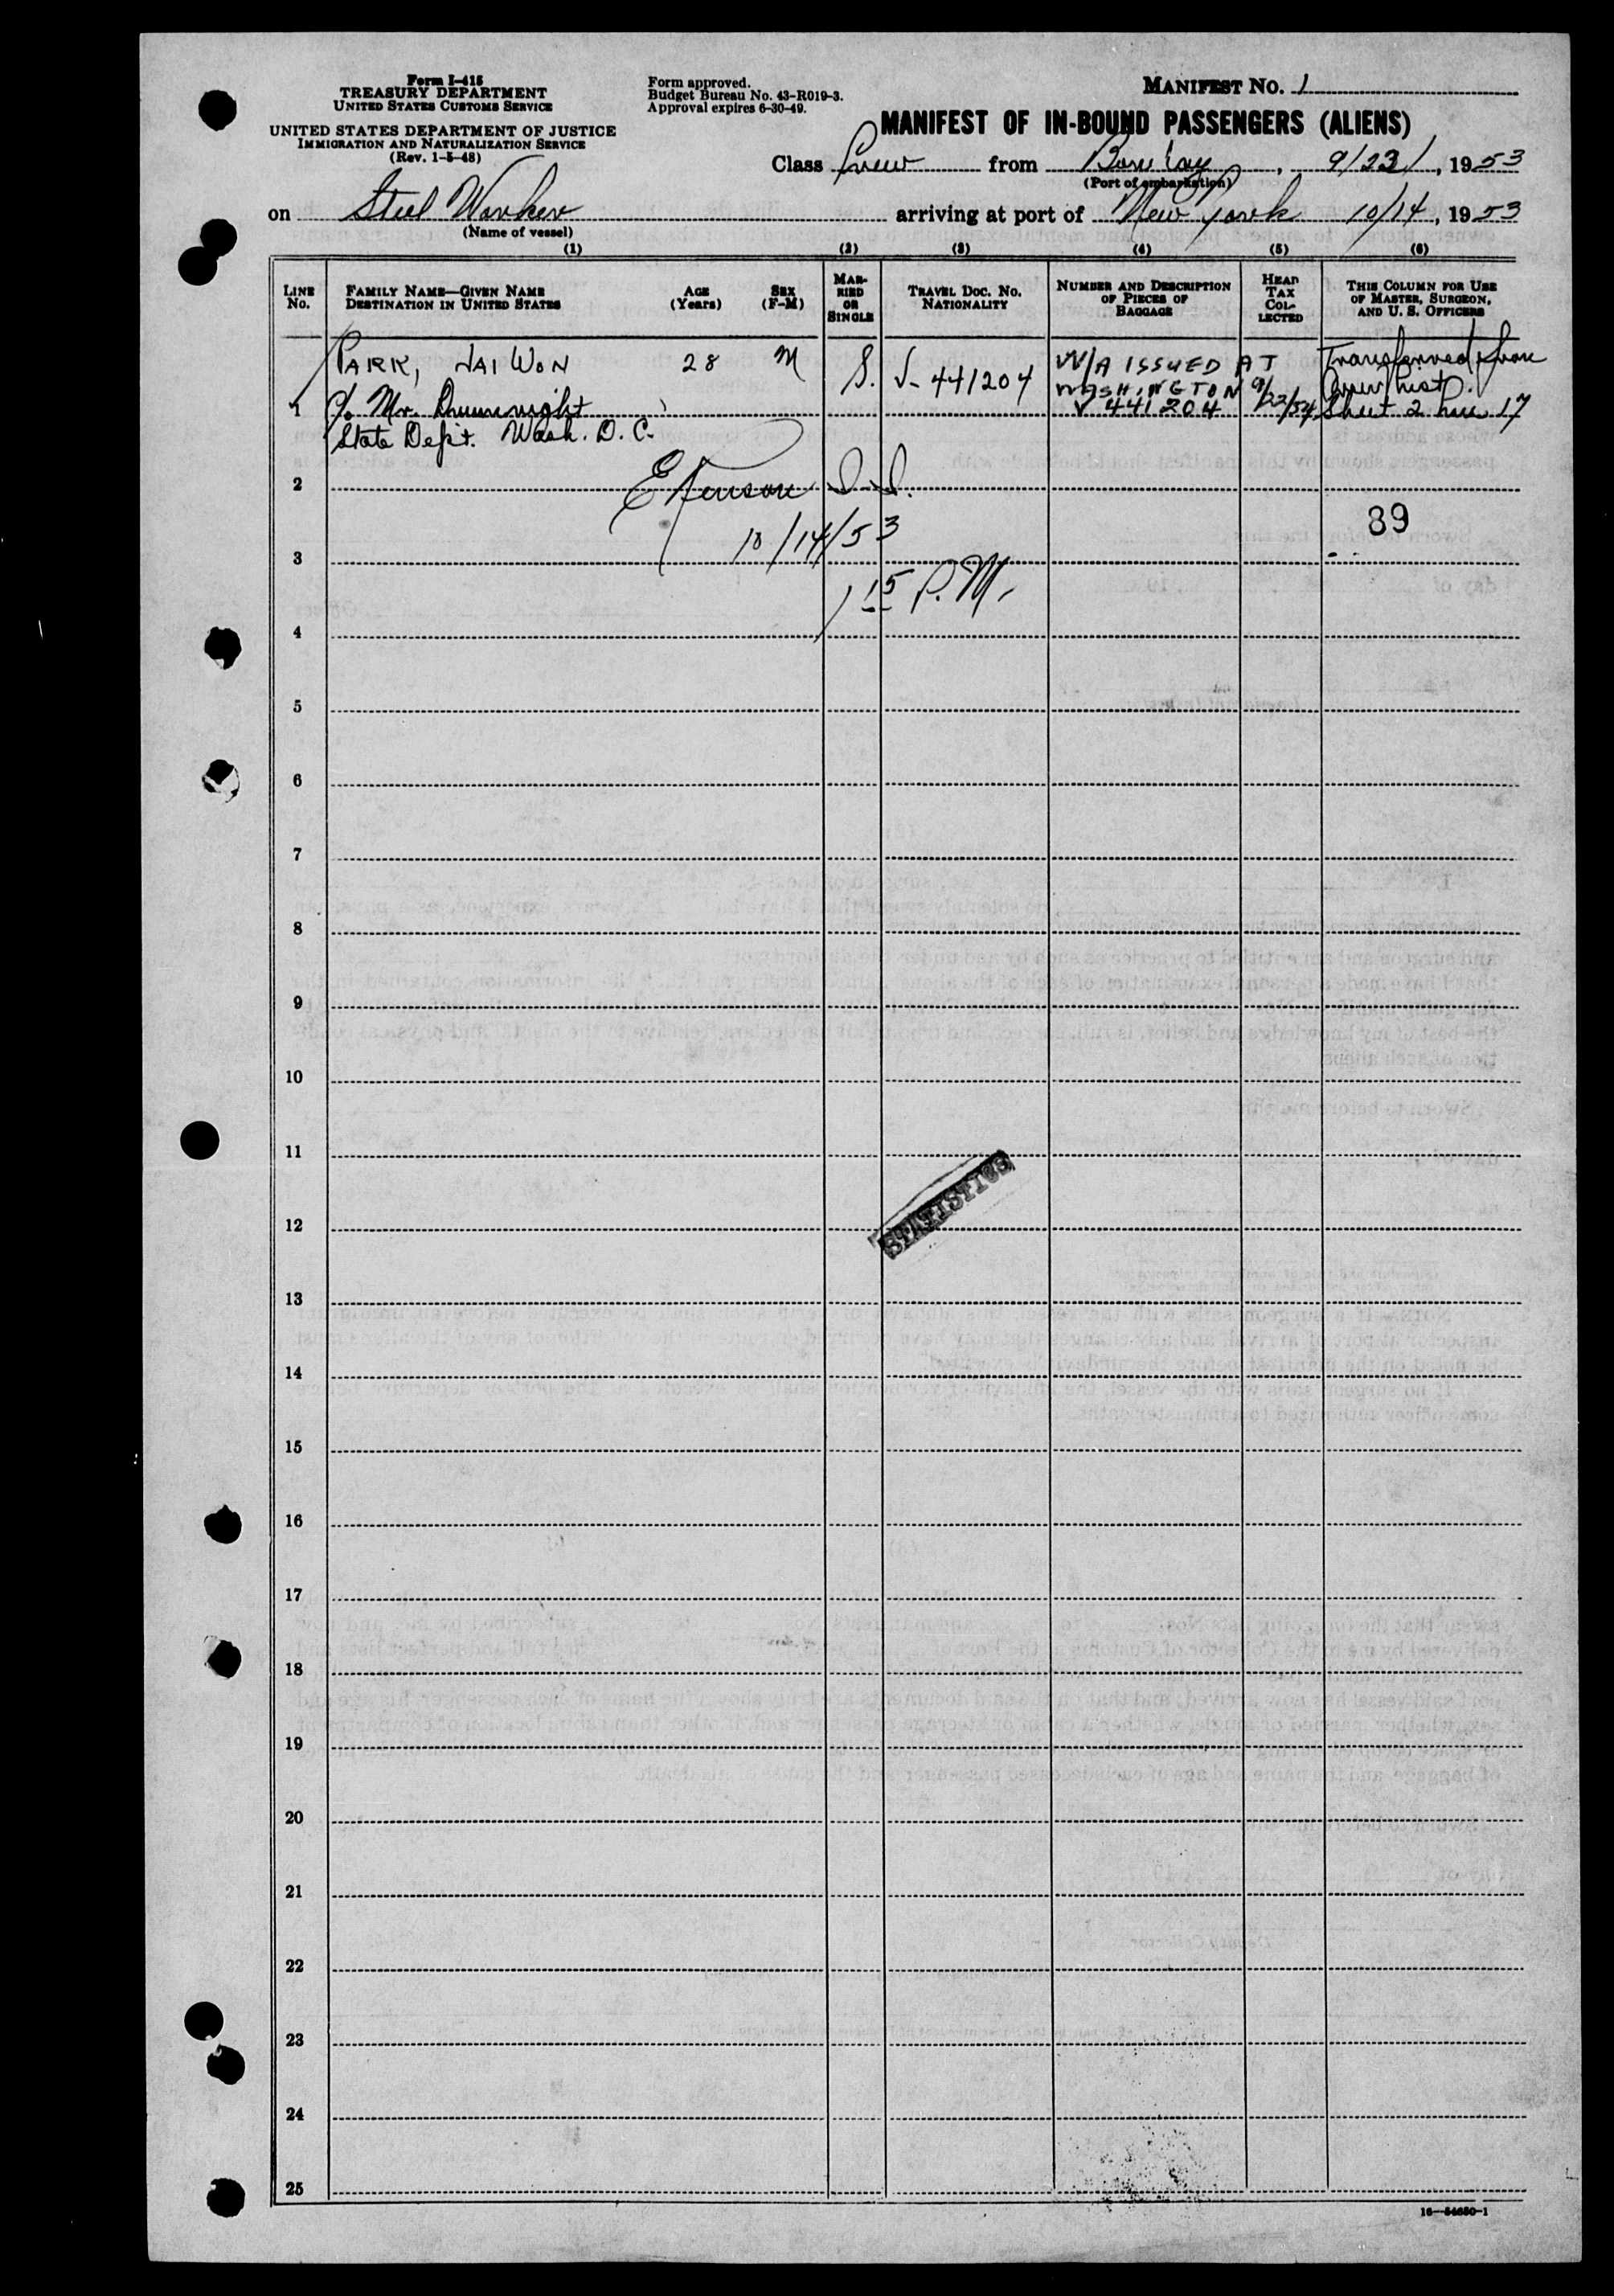 Form I-415
TREASURY DEPARTMENT
UNITED STATES CUSTOMS SERVICE
UNITED STATES DEPARTMENT OF JUSTICE
IMMIGRATION AND NATURALIZATION SERVICE
(Rev. 1-5-48)
Form approved.
Budget Bureau No. 43-R019-3.
Approval expires 6-30-49.
MANIFEST NO. 1
MANIFEST OF IN-BOUND PASSENGERS (ALIENS)
Class Crew from Bombay, 9/23/, 1953
(Port of embarkation)
on Steel Worker arriving at port of New York 10/14, 1953
(Name of vessel)
(1) (2) (3) (4) (5) (6)
LINE No.
FAMILY NAME—GIVEN NAME
DESTINATION IN UNITED STATES
AGE (Years)
SEX (F-M)
MARRIED OR SINGLE
TRAVEL DOC. NO.
NATIONALITY
NUMBER AND DESCRIPTION OF PIECES OF BAGGAGE
HEAD TAX COLLECTED
THIS COLUMN FOR USE OF MASTER, SURGEON, AND U. S. OFFICERS
1 PARK, JAI WON 28 M S. V-441204
c/o Mr.
State Dept. Wash. D. C.
W/A ISSUED AT
WASHINGTON
V 441204
Transferred from
Crew List
Sheet 2 Line 17
2
10/14/53
89
3
1 15 P.M.
4
5
6
7
8
9
10
11
STATISTICS
12
13
14
15
16
17
18
19
20
21
22
23
24
25